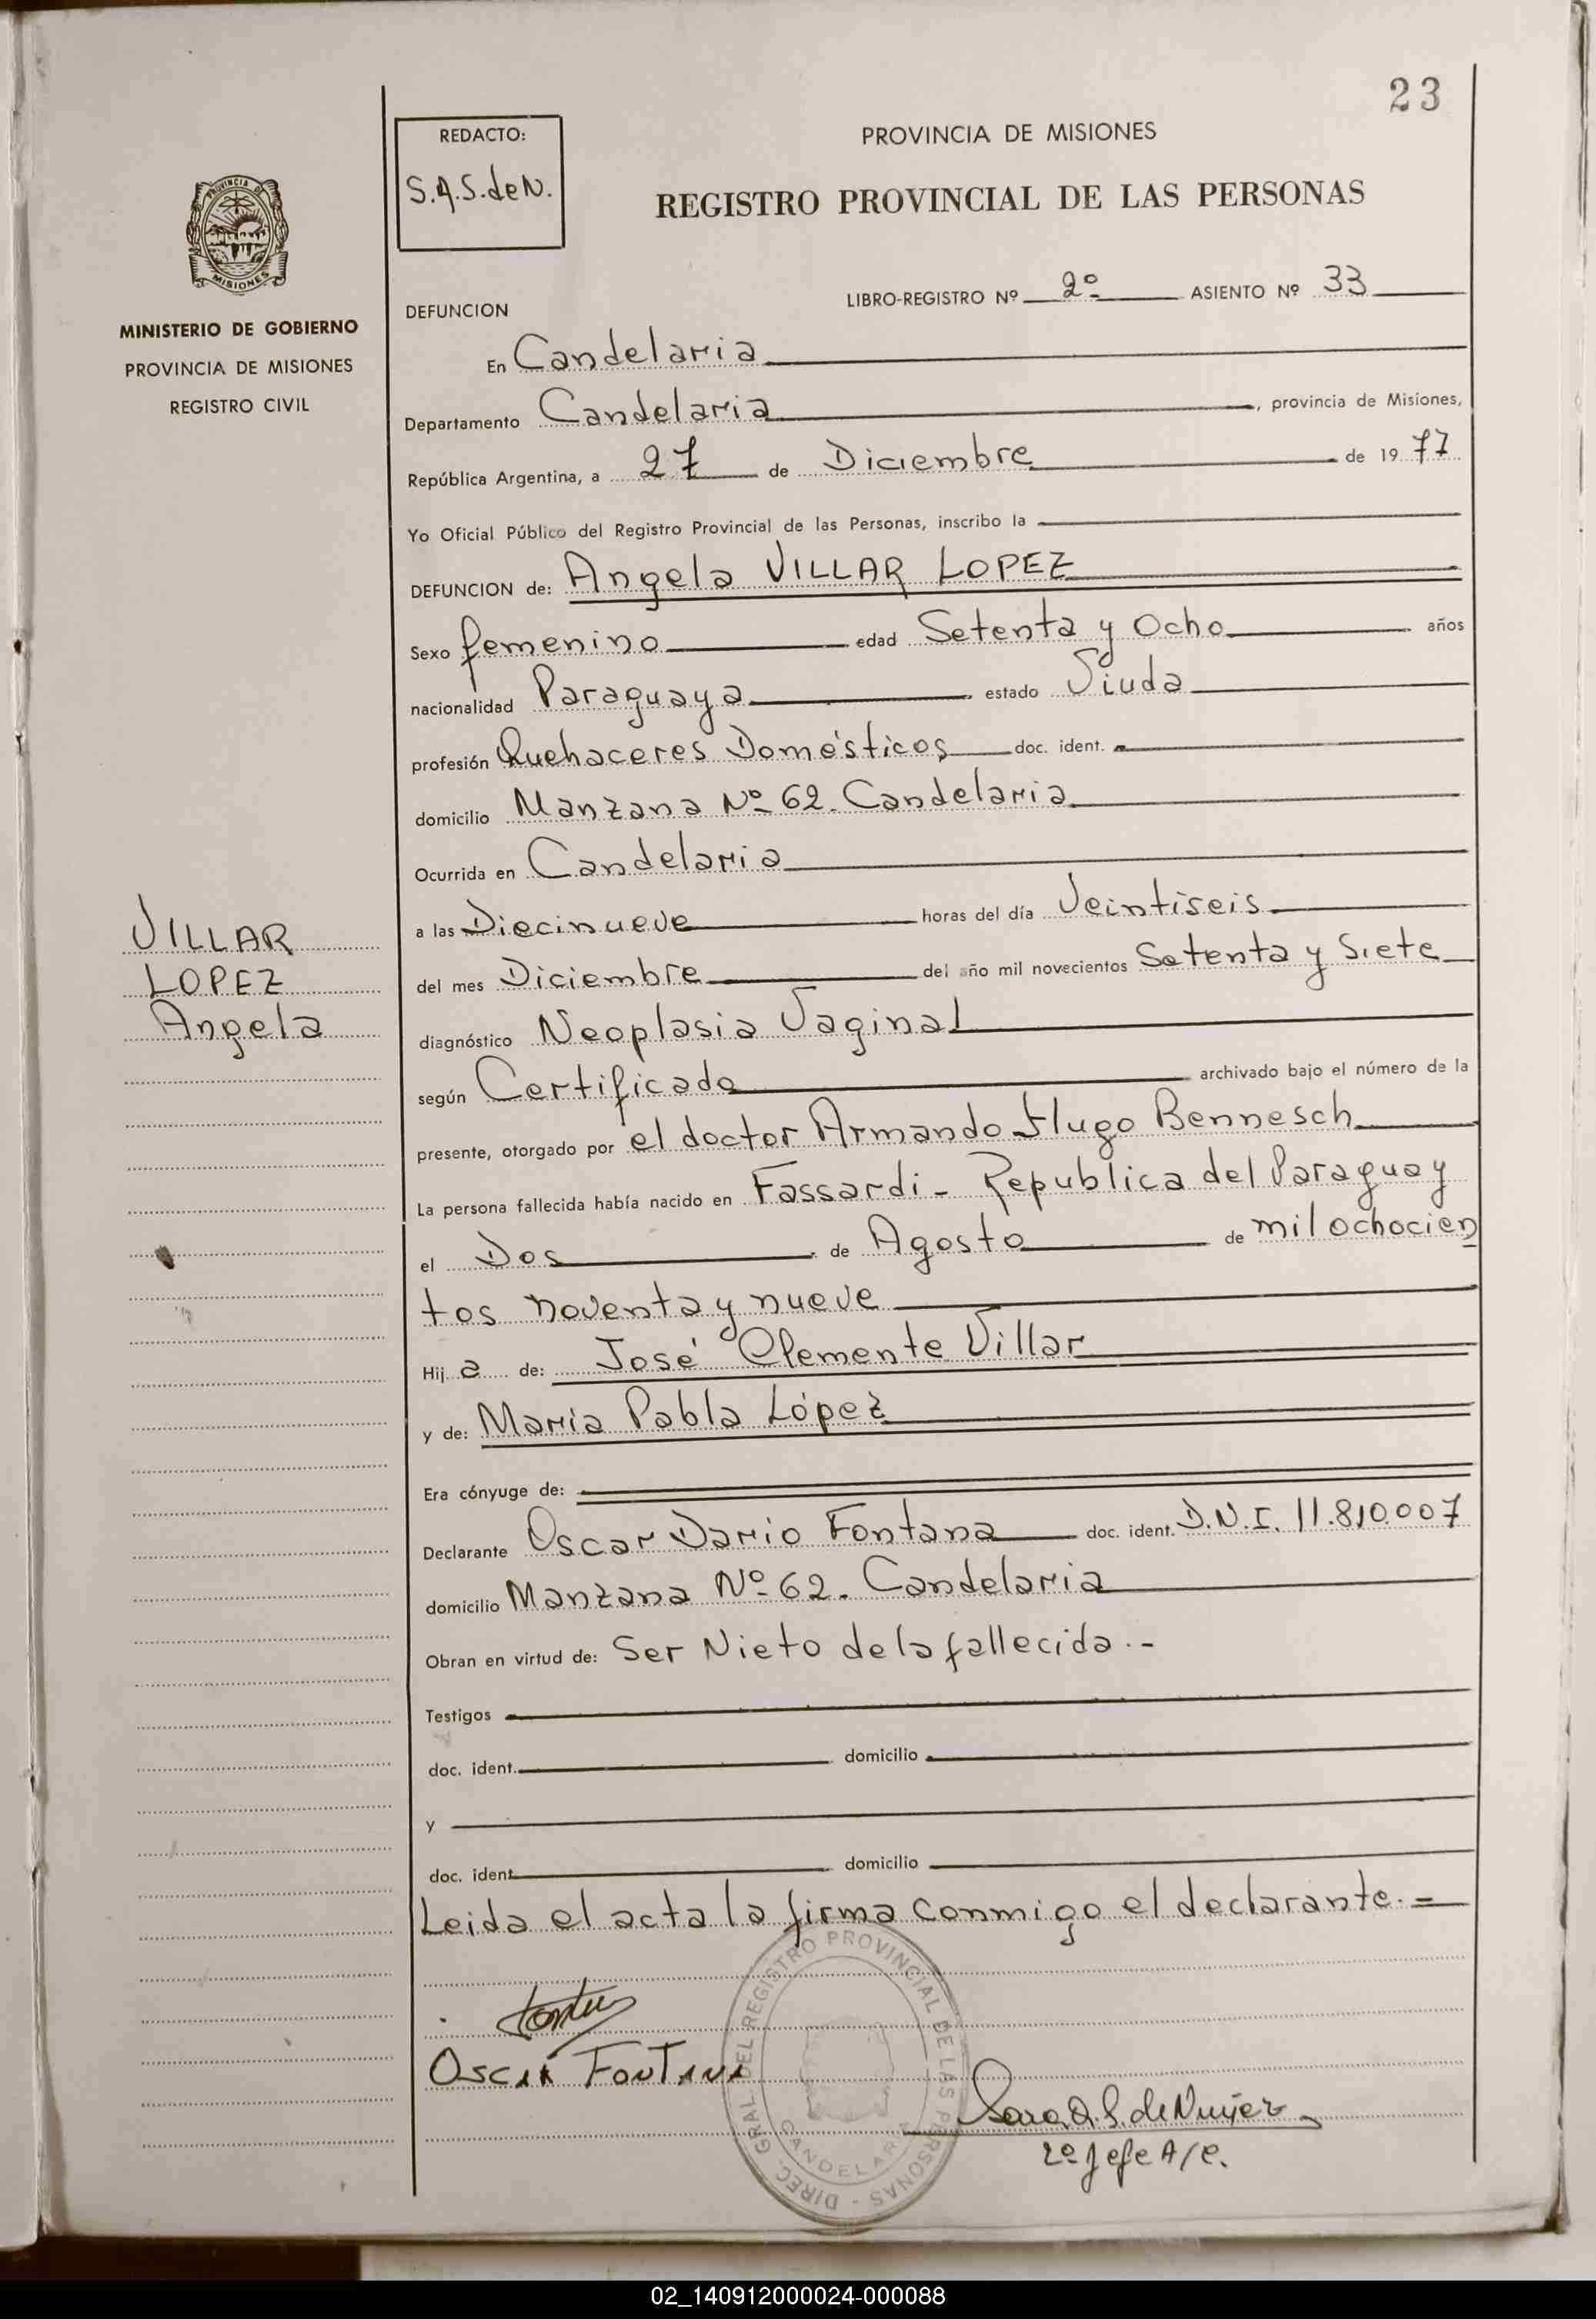 23
REDACTO:
S.A.S.deN.
PROVINCIA DE MISIONES
REGISTRO PROVINCIAL DE LAS PERSONAS
PROVINCIA DE
MISIONES
MINISTERIO DE GOBIERNO
PROVINCIA DE MISIONES
REGISTRO CIVIL
DEFUNCION
LIBRO-REGISTRO Nº 2º ASIENTO Nº 33
En Candelaria
Departamento Candelaria, provincia de Misiones,
República Argentina, a 27 de Diciembre de 1977
Yo Oficial Público del Registro Provincial de las Personas, inscribo la
DEFUNCION de: Angela VILLAR LOPEZ
Sexo femenino edad Setenta y Ocho años
nacionalidad Paraguaya estado Viuda
profesión Quehaceres Domésticos doc. ident.
domicilio Manzana Nº 62. Candelaria
Ocurrida en Candelaria
VILLAR
LOPEZ
Angela
a las Diecinueve horas del día Veintiseis
del mes Diciembre del año mil novecientos Setenta y Siete
diagnóstico Neoplasia Vaginal
según Certificado archivado bajo el número de la
presente, otorgado por el doctor Armando Hugo Bennesch
La persona fallecida había nacido en Fassardi - Republica del Paraguay
el Dos de Agosto de mil ochocien
tos noventa y nueve
Hija de: José Clemente Villar
y de: Maria Pabla López
Era cónyuge de:
Declarante Oscar Dario Fontana doc. ident. D.N.I. 11.810.007
domicilio Manzana Nº 62. Candelaria
Obran en virtud de: Ser Nieto de la fallecida.-
Testigos
doc. ident. domicilio
y
doc. ident. domicilio
Leida el acta la firma conmigo el declarante.=
OSCAR FONTANA
DIREC. GRAL. DEL REGISTRO PROVINCIAL DE LAS PERSONAS -
CANDELARIA
2º Jefe A/C.
02_140912000024-000088